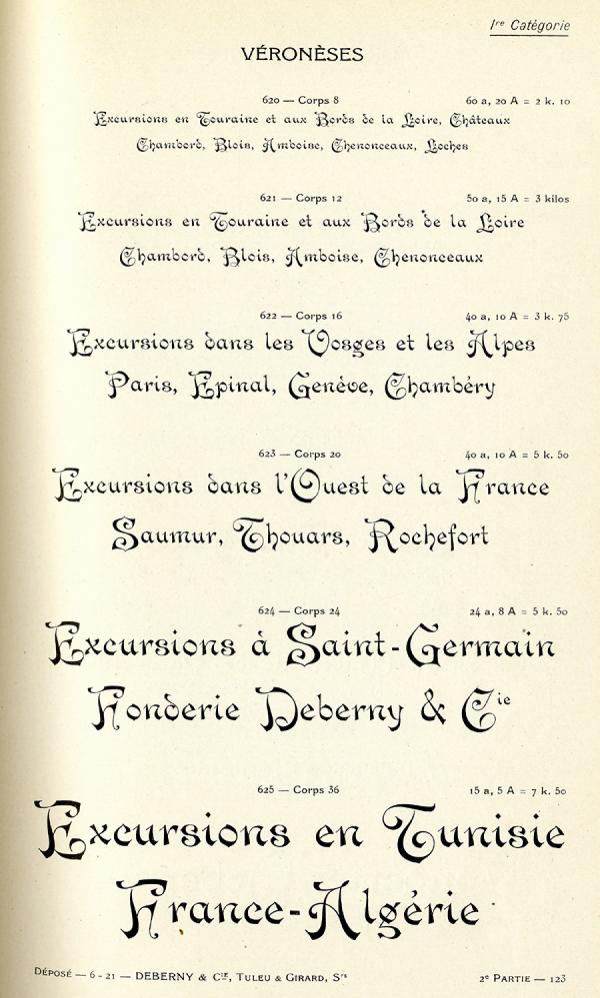 1re Catégorie
VÉRONÈSES
620 — Corps 8 60 a, 20 A = 2 k. 10
Excursions en Touraine et aux Bords de la Loire, Châteaux
Chambord, Blois, Amboise, Chenonceaux, Loches
621 — Corps 12 50 a, 15 A = 3 kilos
Excursions en Touraine et aux Bords de la Loire
Chambord, Blois, Amboise, Chenonceaux
622 — Corps 16 40 a, 10 A = 3 k. 75
Excursions dans les Vosges et les Alpes
Paris, Epinal, Genève, Chambéry
623 — Corps 20 40 a, 10 A = 5 k. 50
Excursions dans l'Ouest de la France
Saumur, Thouars, Rochefort
624 — Corps 24 24 a, 8 A = 5 k. 50
Excursions à Saint-Germain
Fonderie Deberny & Cie
625 — Corps 36 15 a, 5 A = 7 k. 50
Excursions en Tunisie
France-Algérie
DÉPOSÉ — 6 - 21 — DEBERNY & CIE, TULEU & GIRARD, Srs 2e PARTIE — 123